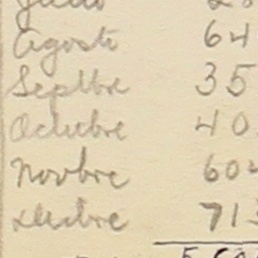 Agosto 64
Sepbre 35
Octubre 40
Novbre 604
Dicbre 713